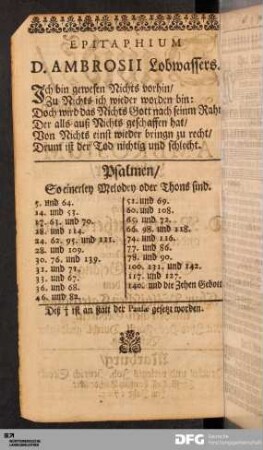 EPITAPHIUM
D. AMBROSII Lobwassers.
Ich bin gewesen Nichts vorhin/
Zu Nichts ich wieder worden bin:
Doch wird das Nichts Gott nach seinm Raht
Der alls auß Nichts geschaffen hat/
Von Nichts einst wieder bringn zu recht/
Drumb ist der Tod nichtig und schlecht.
Psalmen/
So einerley Melodey oder Thons sind.
5. und 64.
14. und 53.
17. 63. und 70.
18. und 144.
24. 62. 95. und 111.
28. und 109.
30. 76. und 139.
31. und 71.
33. und 67.
36. und 68.
46. und 82.
51. und 69.
60. und 108.
65. und 72.
66. 98. und 118.
74. und 116.
77. und 86.
78. und 90.
100. 131. und 142.
117. und 127.
140. und die Zehen Gebott
Diß † ist an statt der Pausæ gesetzt worden.
DFG
Deutsche
Forschungsgemeinschaft